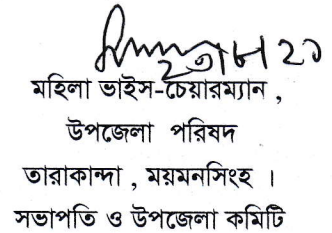 মহিলা ভাইস-চেয়ারম্যান ,
উপজেলা পরিষদ
তারাকান্দা , ময়মনসিংহ ।
সভাপতি ও উপজেলা কমিটি